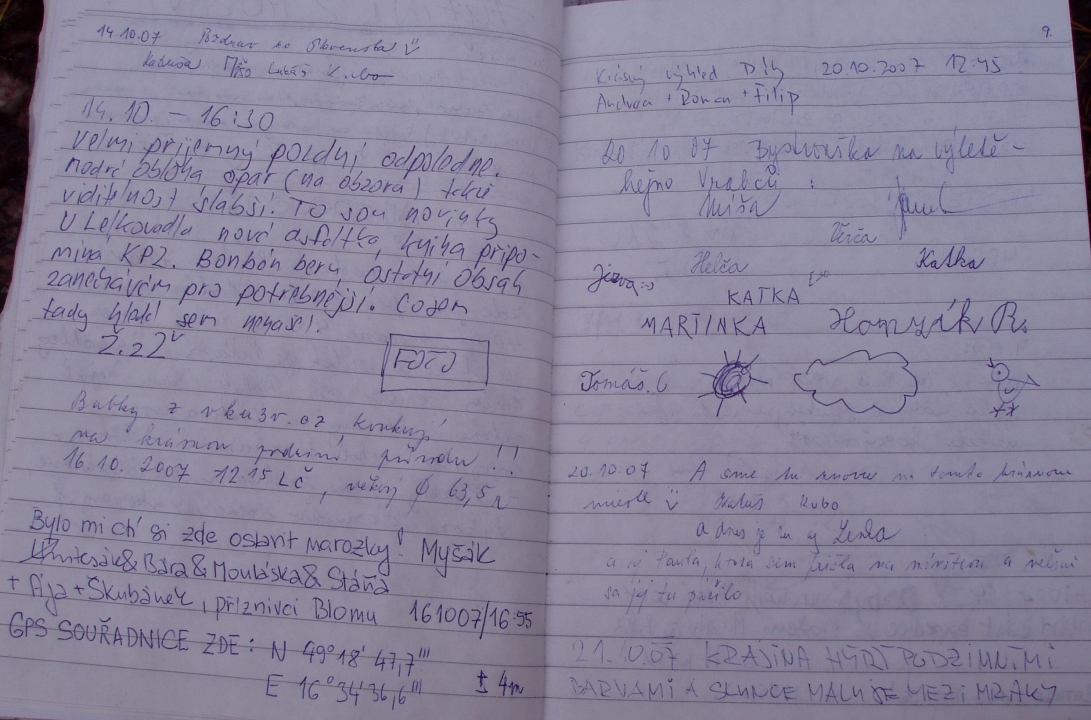 14.10.07 Pozdrav zo Slovenska
Katuša Mišo Lukáš Kubo
14.10. – 16:30
velmi příjemný pozdní odpoledne.
modrá obloha opar (na obzoru) takú
viditelnost slabší. To sou novinky
U Lelkovadla nová asfaltka, kniha připo-
míná KPZ. Bonbón beru, ostatní obsah
zanechávám pro potřebnější. Cosem
tady hledal sem nenašel.
FOTO
Babky z vku3v.cz koukají
na krásnou podzimní přírodu !!
16.10. 2007 12.15 LČ, věkový ϕ 63,5 r
Bylo mi ctí si zde oslavit narozky! Myšák
& Bára & Moulášká & Stáňa
+ Ája + Škubánek, příznivci Blomu 161007/16:55
GPS SOUŘADNICE ZDE: N 49° 18' 47,7'''
E 16° 34' 36,6''' ± 4m
9.
Krásný výhled. Díky 20.10.2007 12:45
Andrea + Roman + Filip
20 10 07 Bystrouška na výletě –
hejno Vrabců :
Míša
Verča
Helča Katka
KATKA
MARTINKA Honzák R.
Tomáš. C
20.10.07 A sme tu znovu na tomto krásnom
mieste Katuš Kubo
a dnes je tu aj Lenka
a aj tauta, ktorá sem prišla na návštevu a veľmi
sa jej tu páčilo
21.10.07 KRAJINA HÝŘÍ PODZIMNÍMI
BARVAMI A SLUNCE MALUJE MEZI MRAKY